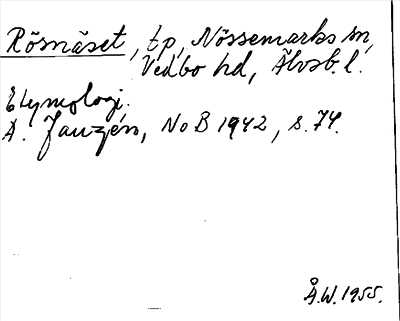 Rösnäset, tp, Nössemarks sn,
Vedbo hd, Älvsb. l.
Etymologi.
A. Janzén, NoB 1942, s. 74.
Å.W. 1955.